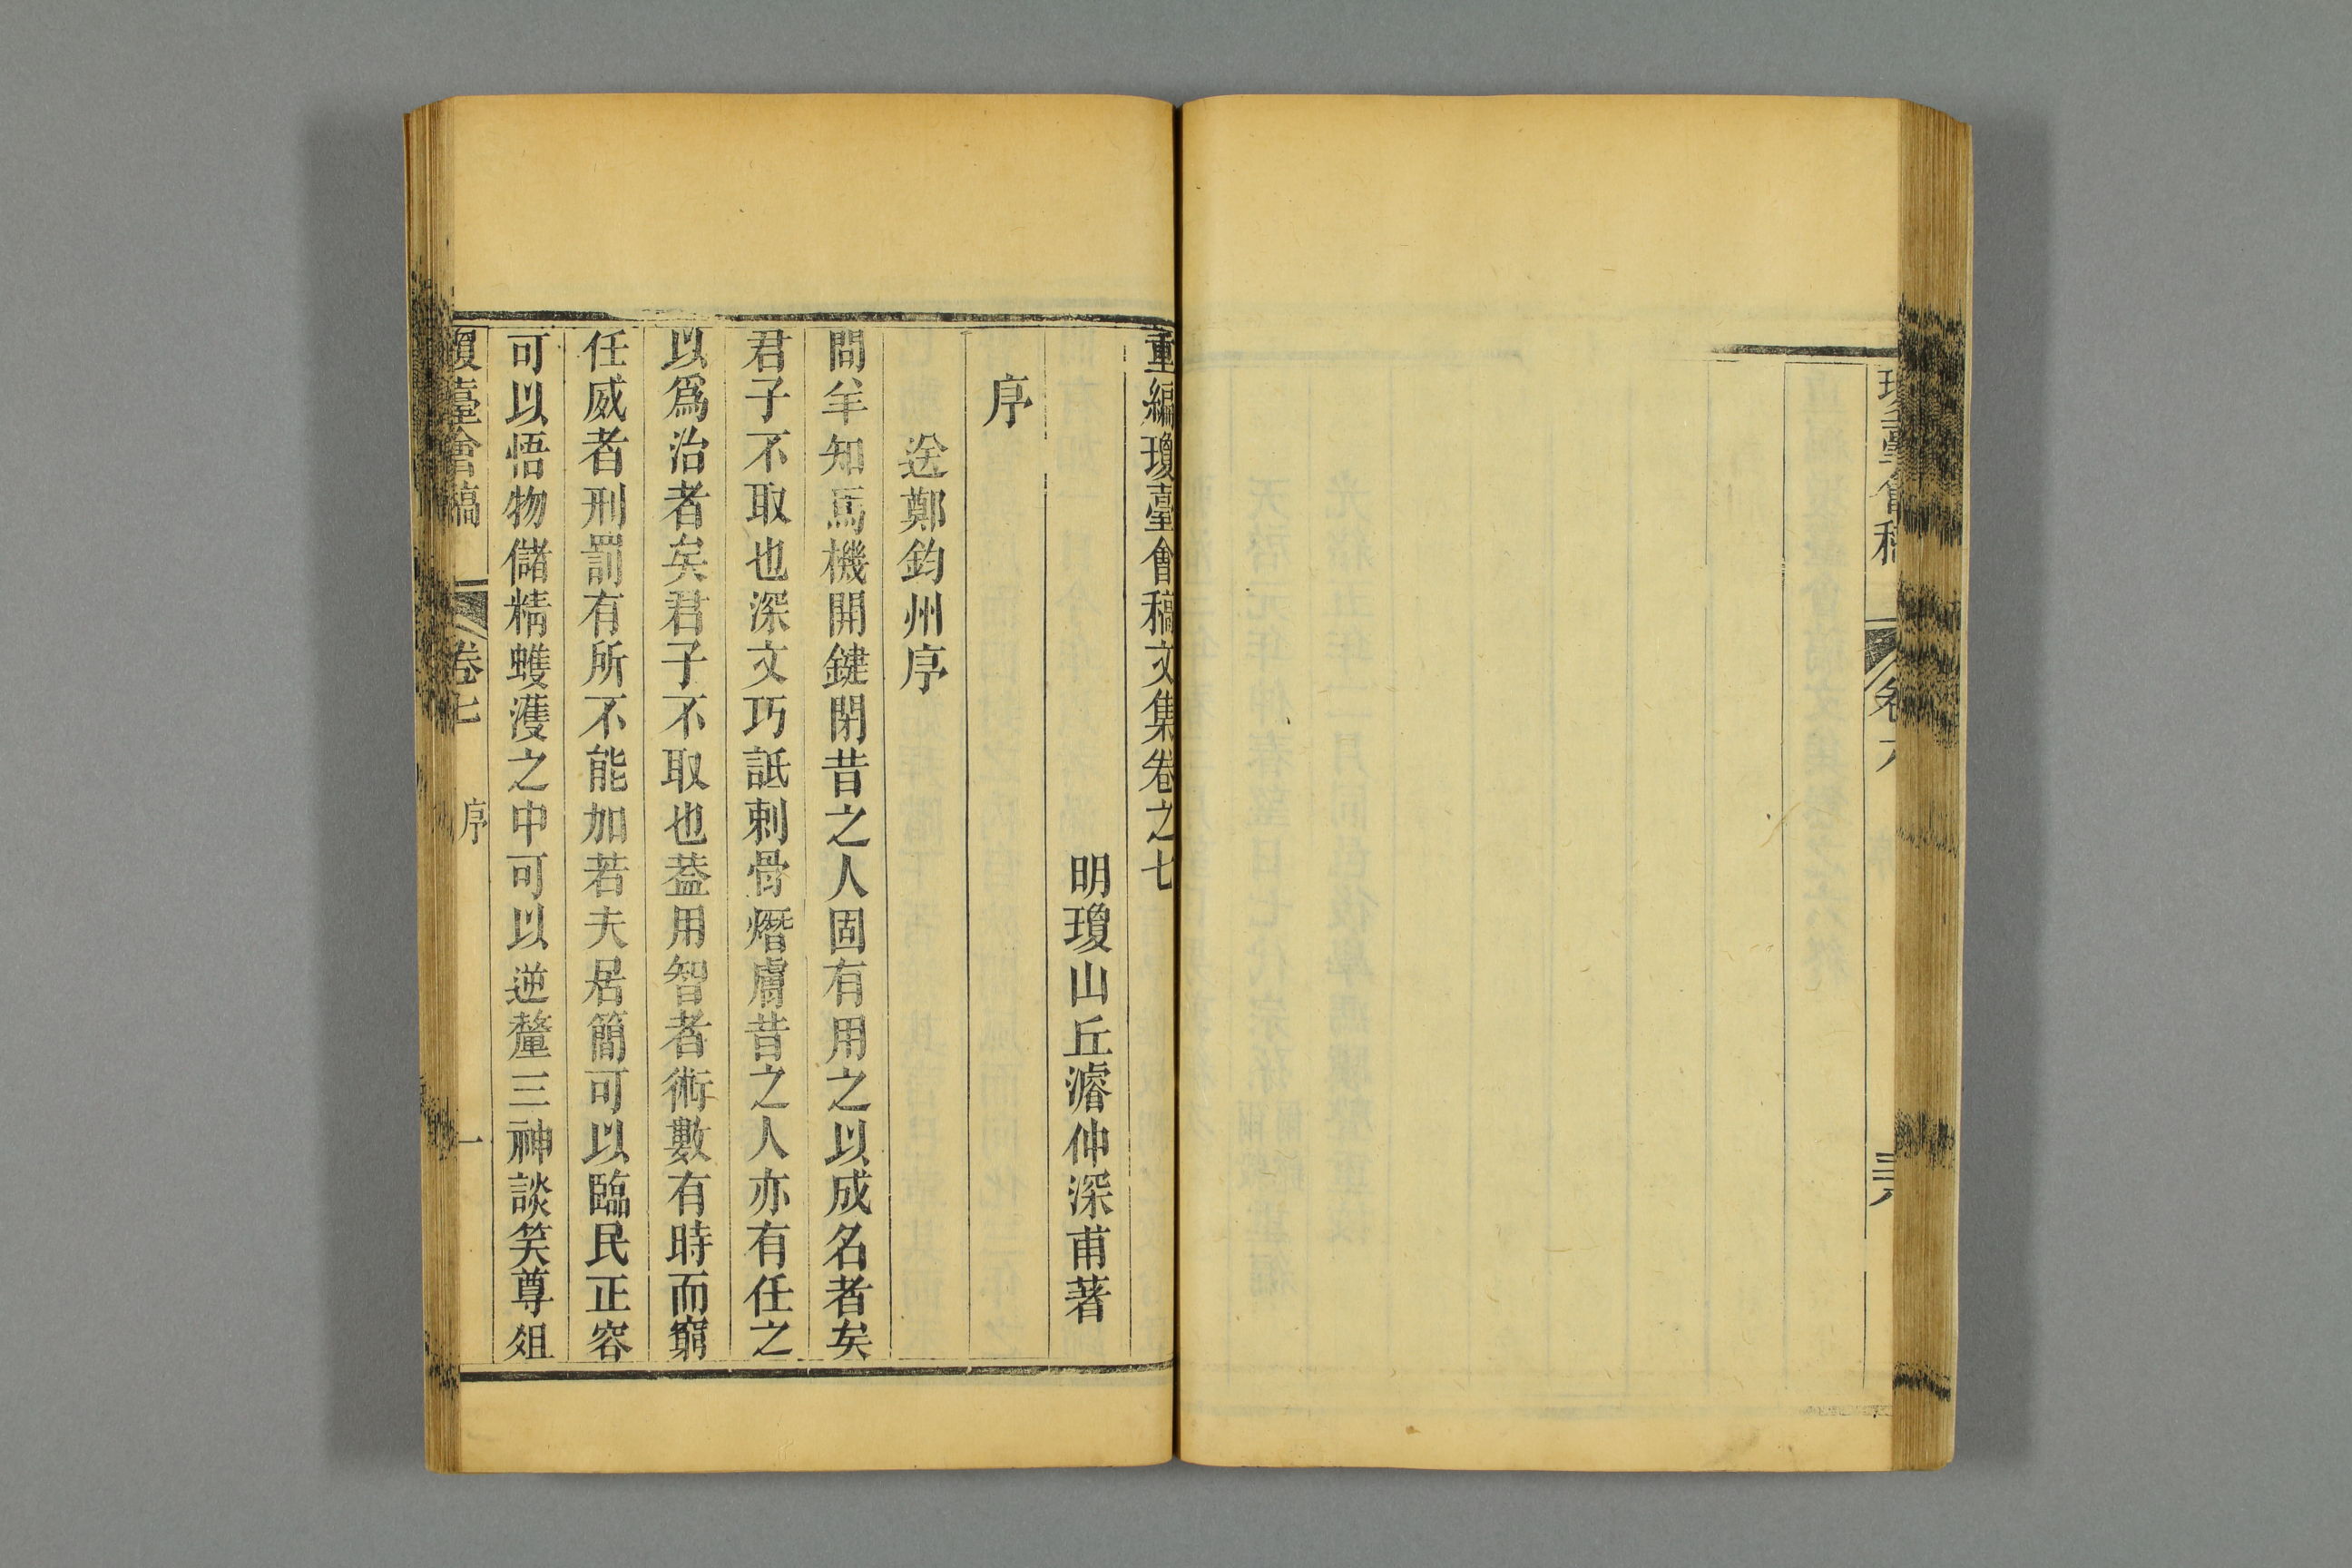 瓊臺會稿
卷六
重編瓊臺會稿文集卷之七
明瓊山丘濬仲深甫著
序
送鄭鈞州序
問羊知馬機開鍵閉昔之人固有用之以成名者矣
君子不取也深文巧詆刺骨熸膚昔之人亦有任之
以爲治者矣君子不取也葢用智者術數有時而窮
任威者刑罰有所不能加若夫居簡可以臨民正容
可以悟物儲精蠖濩之中可以逆釐三神談笑尊俎
瓊臺會稿
卷七
序
一